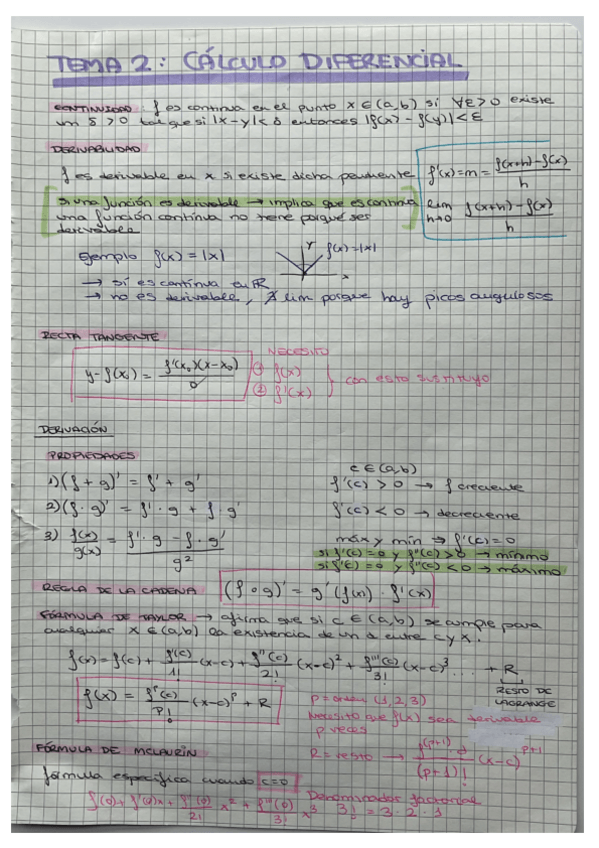 TEMA 2: CÁLCULO DIFERENCIAL
CONTINUIDAD: f es continua en el punto x ∈ (a,b) si ∀ε>0 existe
un δ > 0 tal que si |x-y| < δ entonces |f(x) - f(y)| < ε
DERIVABILIDAD
f es derivable en x si existe dicha pendiente
f'(x) = m = f(x+h) - f(x) / h
lim h→0 f(x+h) - f(x) / h
si una función es derivable → implica que es continua
una función continua no tiene porqué ser
derivable
ejemplo f(x) = |x|
y f(x) = |x|
x
→ sí es continua en ℝ
→ no es derivable, ∄ lim porque hay picos angulosos
RECTA TANGENTE
y - f(x₀) = f'(x₀)(x-x₀) / 0
NECESITO
① f(x)
② f'(x)
con esto sustituyo
DERIVACIÓN
PROPIEDADES
1) (f + g)' = f' + g'
2) (f · g)' = f' · g + f · g'
3) f(x) / g(x) = f' · g - f · g' / g²
c ∈ (a,b)
f'(c) > 0 → f creciente
f'(c) < 0 → decreciente
máx y mín → f'(c) = 0
si f'(c) = 0 y f''(c) > 0 → mínimo
si f'(c) = 0 y f''(c) < 0 → máximo
REGLA DE LA CADENA (f ∘ g)' = g'(f(x)) · f'(x)
FÓRMULA DE TAYLOR → afirma que si c ∈ (a,b) se cumple para
cualquier x ∈ (a,b) la existencia de un α entre c y x.
f(x) = f(c) + f'(c)/1! (x-c) + f''(c)/2! (x-c)² + f'''(c)/3! (x-c)³ ... + R
RESTO DE
LAGRANGE
f(x) = fᵖ(c)/P! (x-c)ᵖ + R
P = orden (1,2,3)
Necesito que f(x) sea derivable
p veces
R = resto → f⁽ᵖ⁺¹⁾ / (p+1)! (x-c)ᵖ⁺¹
FÓRMULA DE MCLAURIN
fórmula específica cuando c=0
f(0) + f'(0)x + f''(0)/2! x² + f'''(0)/3! x³
Denominador factorial
3! = 3 · 2 · 1